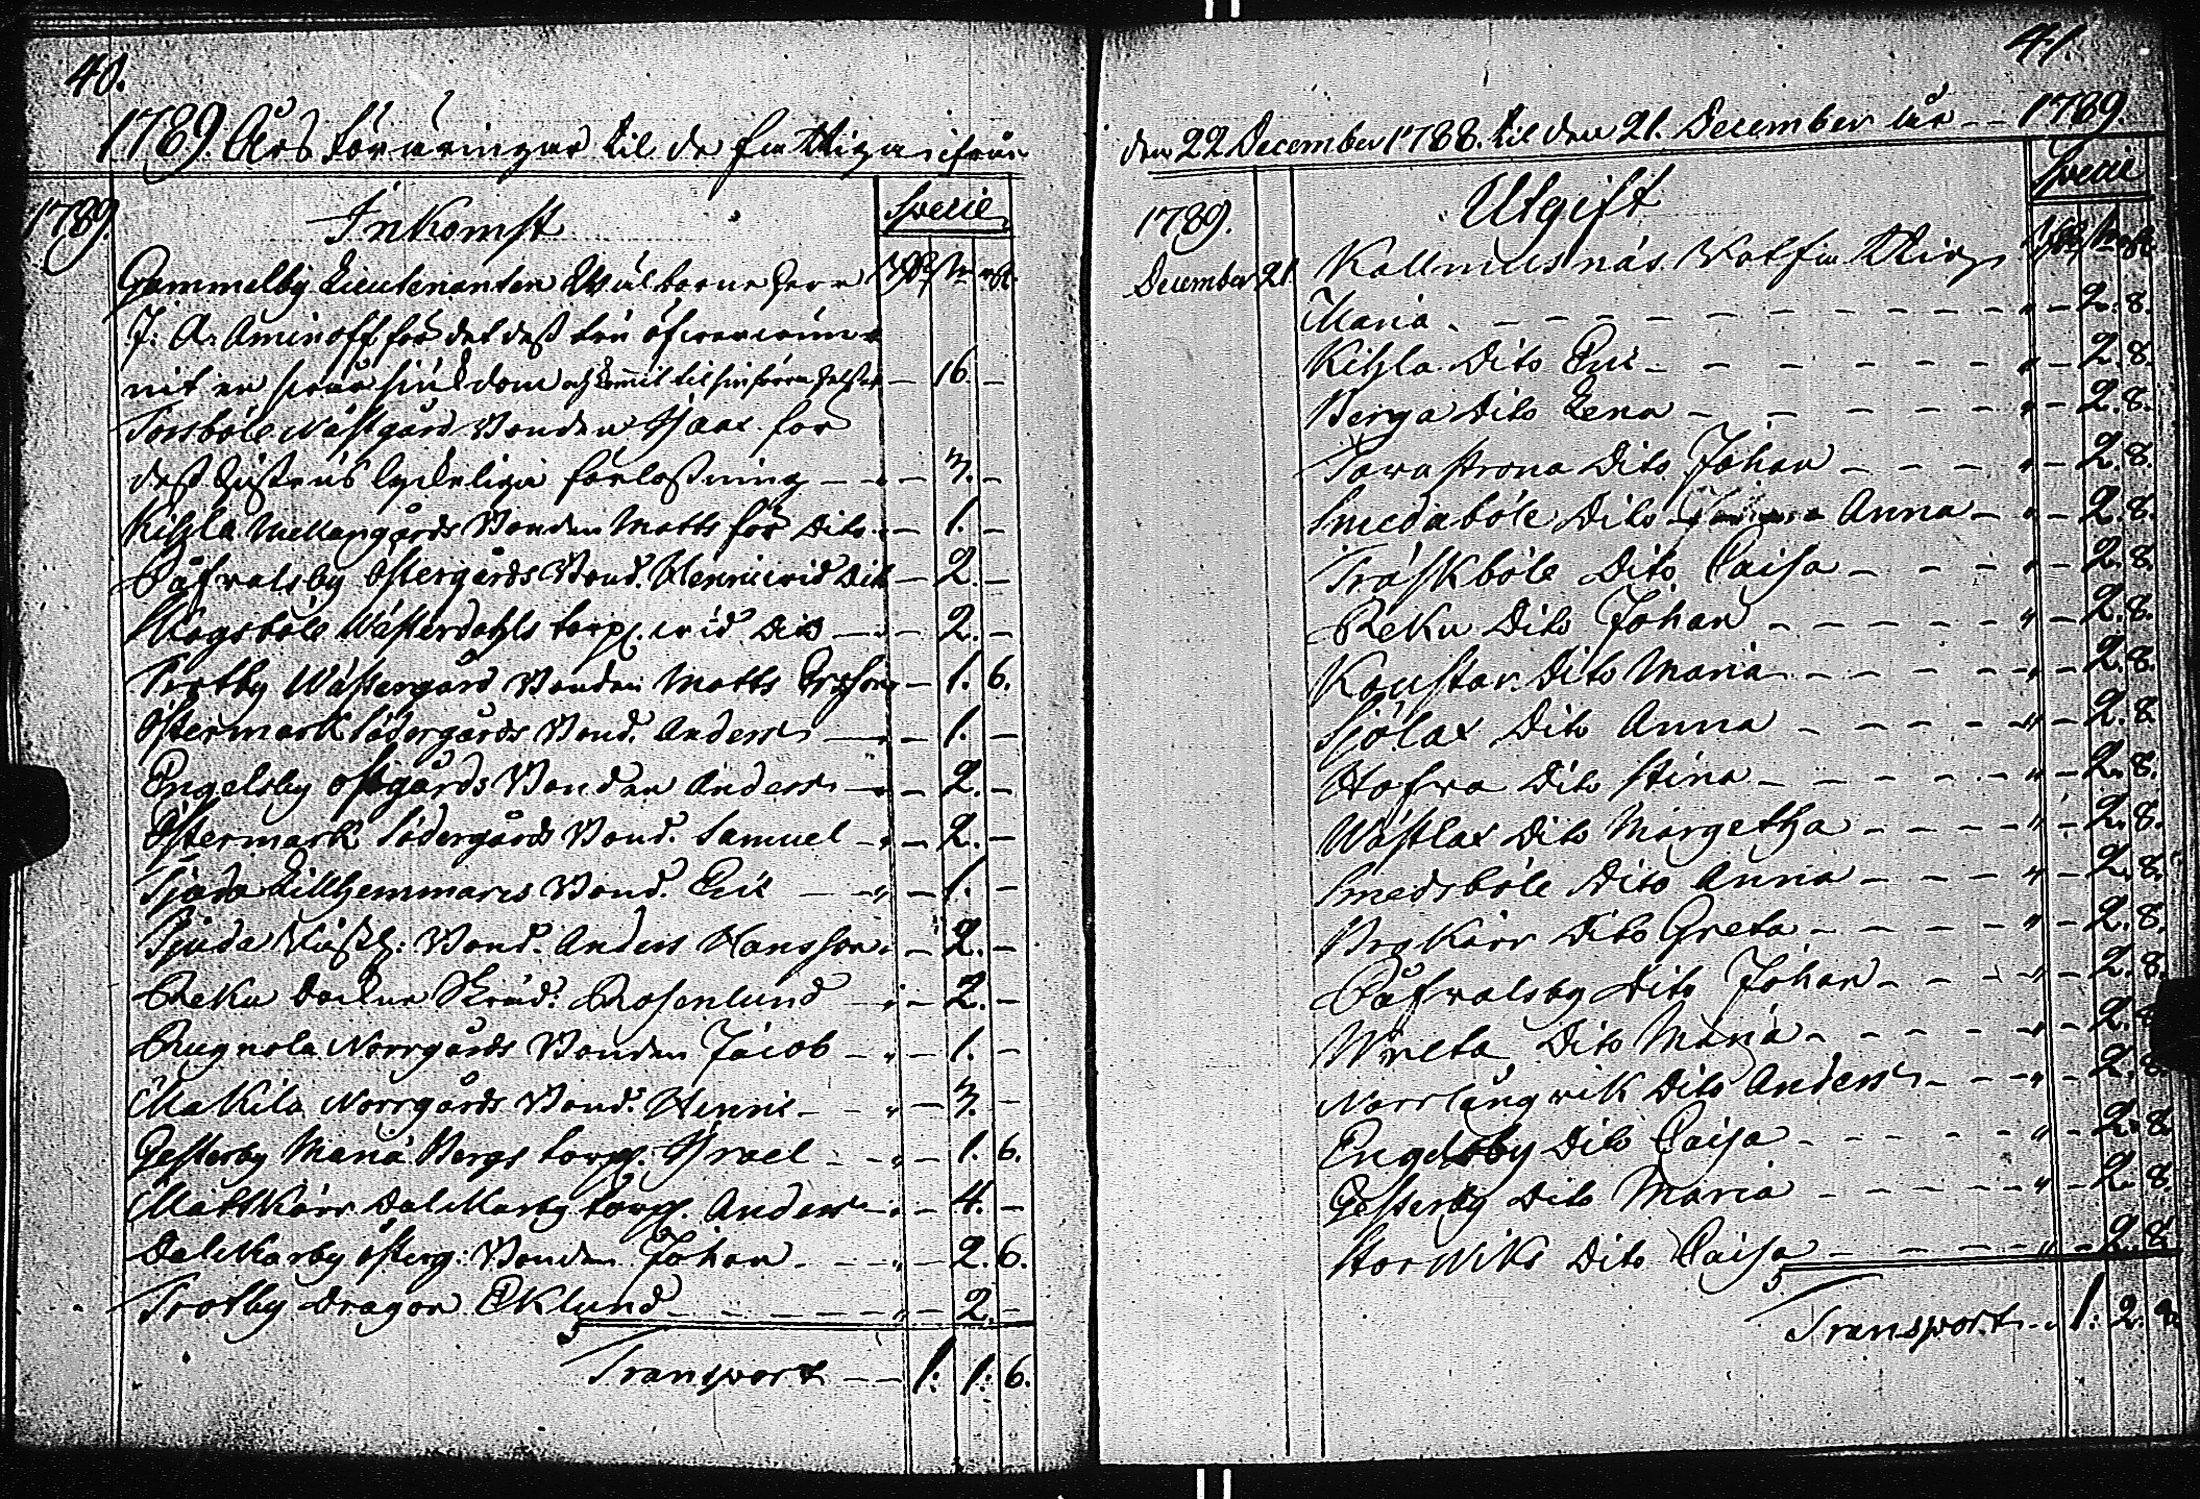 40.
1789. Års Föräringar til de fattiga ifrån
1789. Inkomst Specie
Gammelby Lieutenanten Wälborne Herr
J: A: Aminoff för det dess
sjukdom och kommit til sin förra hälsa — 16. —
Torsböle Wästgård Bonden Isaac för
dess Hustrus lyckeliga förlossning — — 3. —
Kihla Mellangårds Bonden Matts för Dito — 1. —
Påfvalsby Östergårds Bond. Henric vid Dito — 2. —
Skogsböle Wästerdahls torp. vid Dito — — 2. —
Trotby Wästergård Bonden Matts Ersson — 1. 6.
Östermark Södergårds Bond. Anders — — 1. —
Engelsby Östgårds Bonden Anders — — 2. —
Östermark Södergårds Bond. Samuel — — 2. —
Tjuda Lillhemmans Bond. Eric — — 1. —
Tjuda Bond. Anders Hansson — 2. —
Reku Skräd. Rosenlund — — 2. —
Rugnola Norrgårds Bonden Jacob — — 1. —
Makila Norrgårds Bond. Henric — — 3. —
Gesterby Maria Bergs torp. Israel — — 1. 6.
Mattkärr Dalkarby torp. Anders — — 4. —
Dalkarby Österg: Bonden Johan — — 2. 6.
Trotby Dragon Eklund — — — 2. —
Transport — — 1: 1: 6.
41.
den 22 December 1788. til den 21. December år — — 1789.
1789. Utgift Specie
December 21. Kallmusnäs Rotfattig
Maria — — — 2. 8.
Kihla Dito Eric — — — 2. 8.
Berga Dito Lena — — — 2. 8.
Dito Johan — — — 2. 8.
Smedaböle Dito Anna — — 2. 8.
Träskböle Dito Caisa — — — 2. 8.
Reku Dito Johan — — — 2. 8.
Dito Maria — — — 2. 8.
Sjölax Dito Anna — — — 2. 8.
Hofva Dito Stina — — — 2. 8.
Wästlax Dito Margetha — — — 2. 8.
Smedsböle Dito Anna — — — 2. 8.
Brokärr Dito Greta — — — 2. 8.
Påfvalsby Dito Johan — — — 2. 8.
Wreta Dito Maria — — — 2. 8.
Norrlångvik Dito Anders — — — 2. 8.
Engelsby Dito Caisa — — — 2. 8.
Gesterby Dito Maria — — — 2. 8.
Storwiks Dito Caisa — — — 2. 8.
Transport — 1: 2: 8.